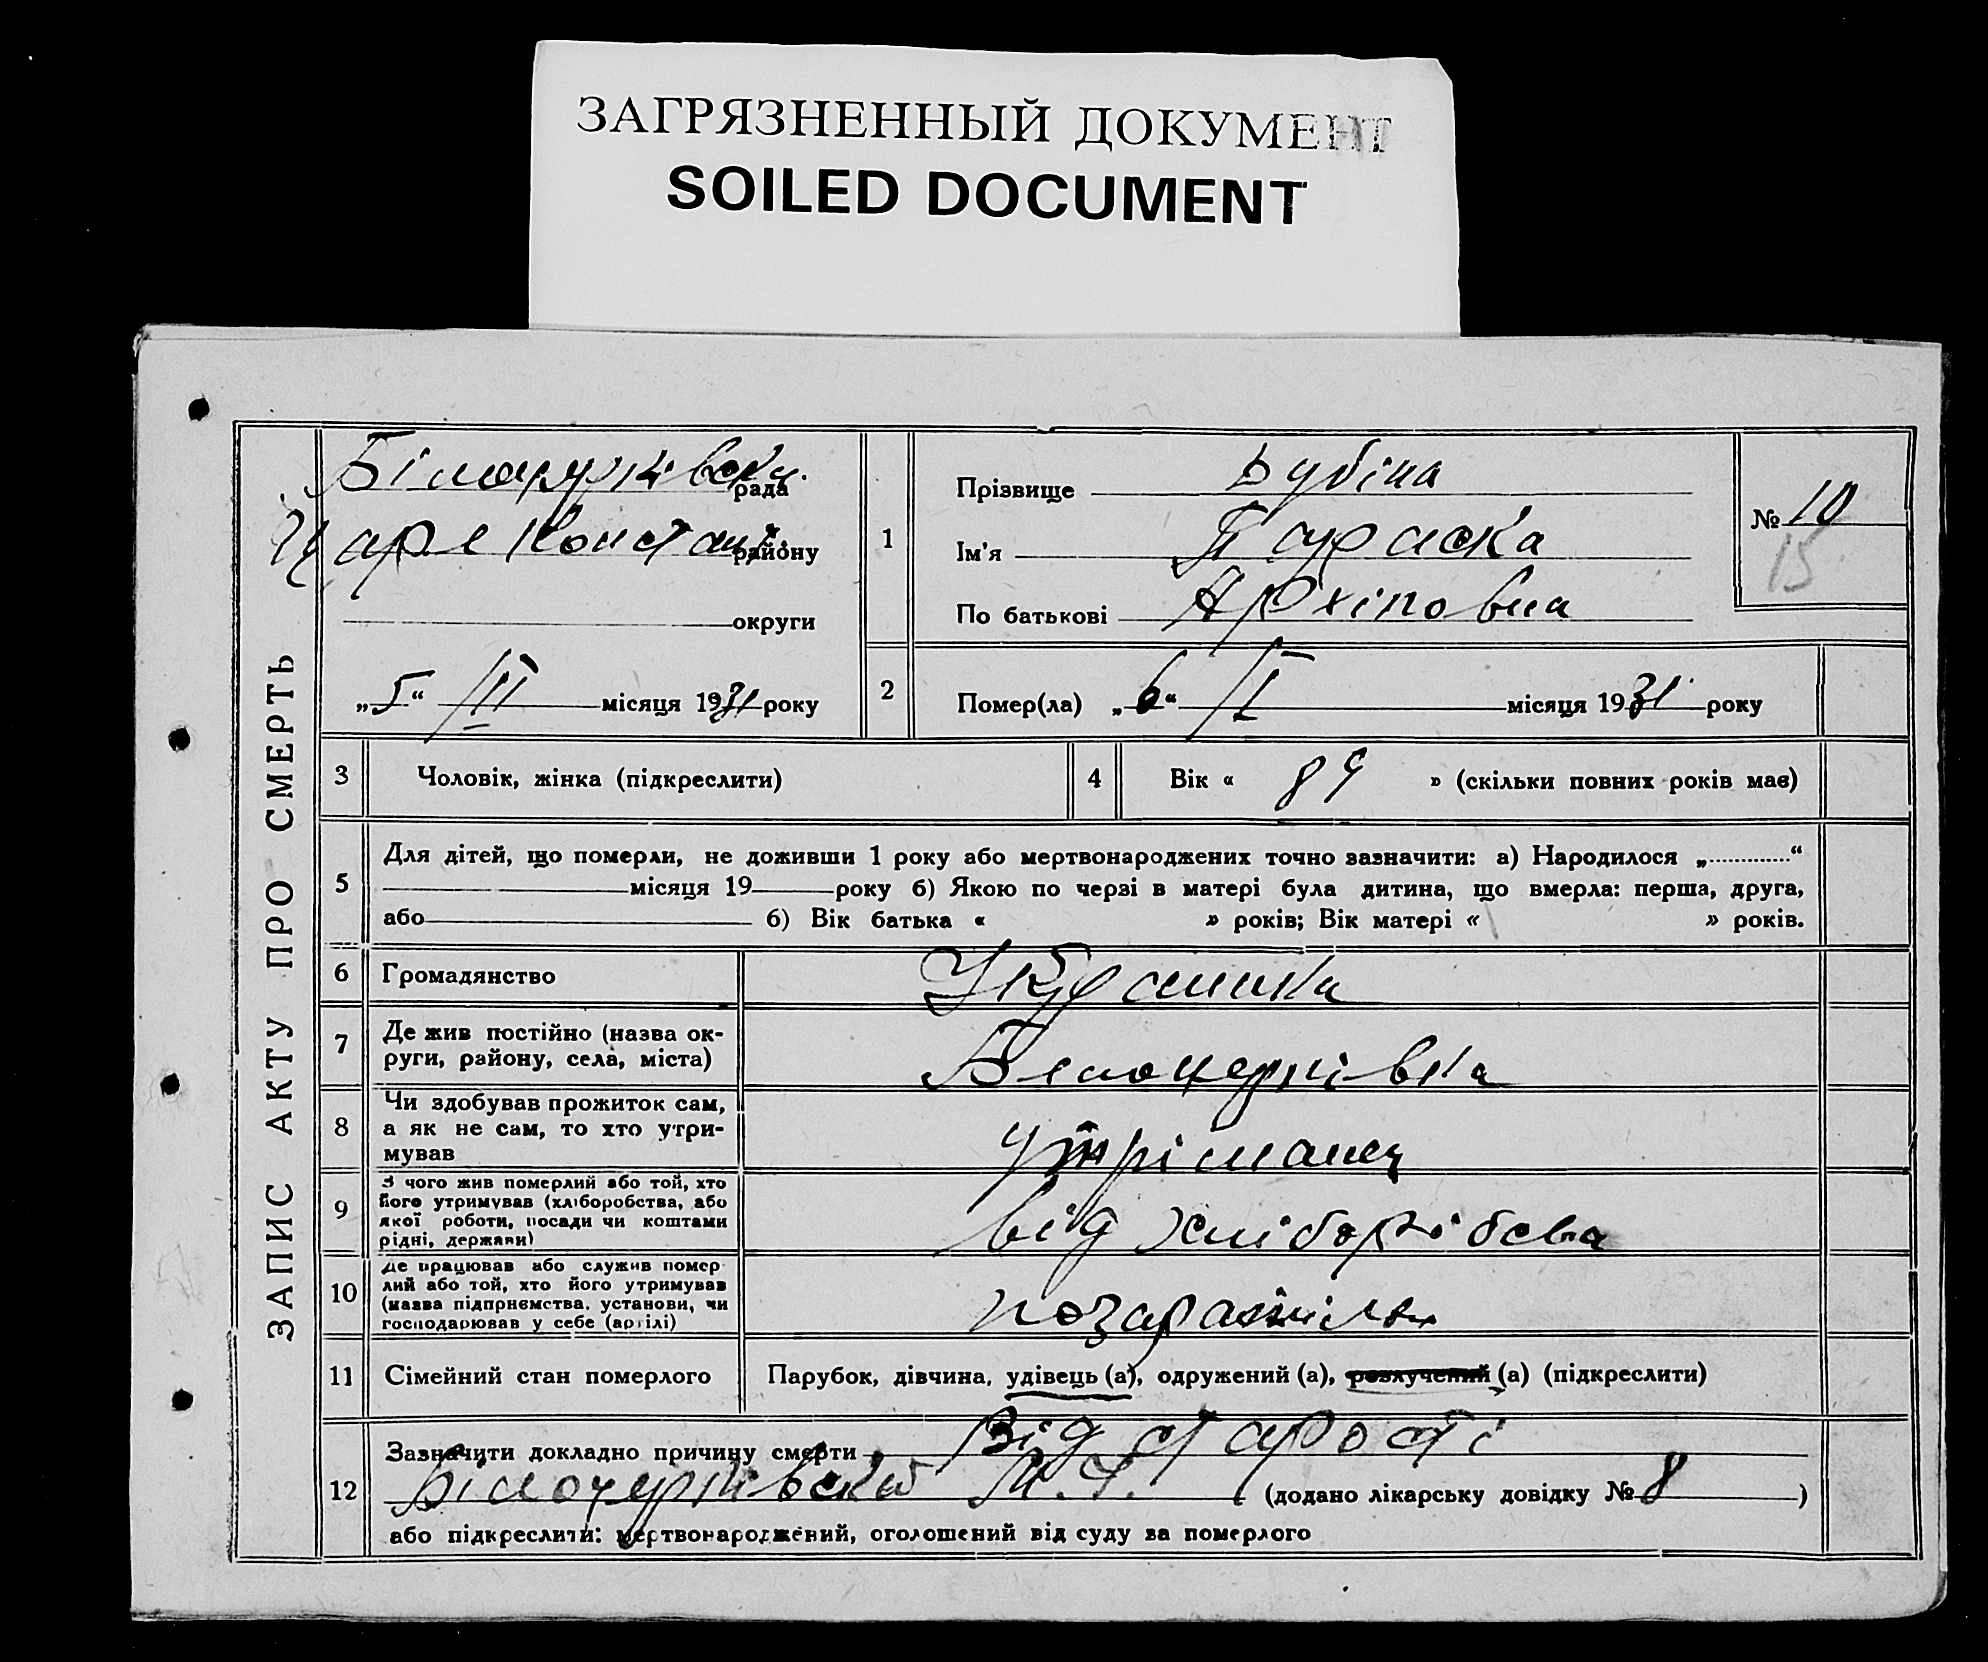 ЗАГРЯЗНЕННЫЙ ДОКУМЕНТ
SOILED DOCUMENT
ЗАПИС АКТУ ПРО СМЕРТЬ
рада
Царе Констант. району
округи
„5“ /III місяця 1931 року
1
Прізвище Бубіна
Ім'я Параска
По батькові Архіповна
№ 10
15
2
Помер(ла) „6“ /I місяця 1931 року
3 Чоловік, жінка (підкреслити)
4 Вік « 89 » (скільки повних років має)
5 Для дітей, що померли, не доживши 1 року або мертвонароджених точно зазначити: а) Народилося „............“
місяця 19 року б) Якою по черзі в матері була дитина, що вмерла: перша, друга,
або б) Вік батька « » років; Вік матері « » років.
6 Громадянство Українка
7 Де жив постійно (назва ок-
руги, району, села, міста)
8 Чи здобував прожиток сам,
а як не сам, то хто утри-
мував
утріманец
9 З чого жив померлий або той, хто
його утримував (хліборобства, або
якої роботи, посади чи коштами
рідні, держави)
від хліборобства
10 Де працював або служив помер-
лий або той, хто його утримував
(назва підприємства, установи, чи
господарював у себе (артілі)
11 Сімейний стан померлого Парубок, дівчина, удівець (а), одружений (а), розлучений (а) (підкреслити)
12 Зазначити докладно причину смерти Від старості
(додано лікарську довідку № 8 )
або підкреслити: мертвонароджений, оголошений від суду за померлого